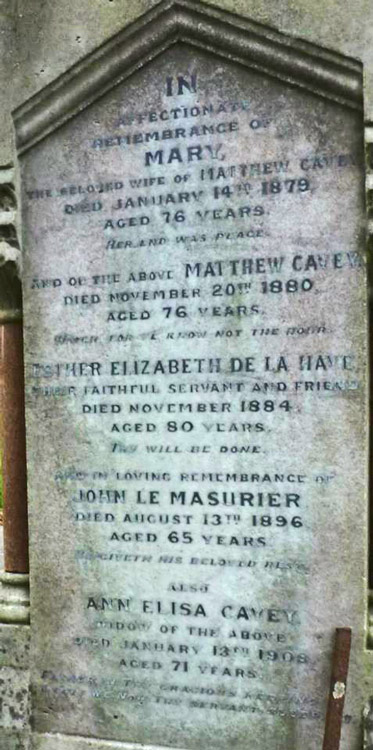 IN
AFFECTIONATE
REMEMBRANCE OF
MARY,
THE BELOVED WIFE OF MATTHEW CAVEY
DIED JANUARY 14TH 1879,
AGED 76 YEARS.
HER END WAS PEACE.
AND OF THE ABOVE MATTHEW CAVEY,
DIED NOVEMBER 20TH 1880
AGED 76 YEARS.
WATCH FOR YE KNOW NOT THE HOUR
ESTHER ELIZABETH DE LA HAYE
THEIR FAITHFUL SERVANT AND FRIEND
DIED NOVEMBER 1884.
AGED 80 YEARS.
THY WILL BE DONE.
AND IN LOVING REMEMBRANCE OF
JOHN LE MASURIER
DIED AUGUST 13TH 1896
AGED 65 YEARS
HE GIVETH HIS BELOVED REST
ALSO
ANN ELISA CAVEY
WIDOW OF THE ABOVE
DIED JANUARY 13TH 1908
AGED 71 YEARS.
THE GRACIOUS KEEPING
LEAVE WE NOW THY SERVANT